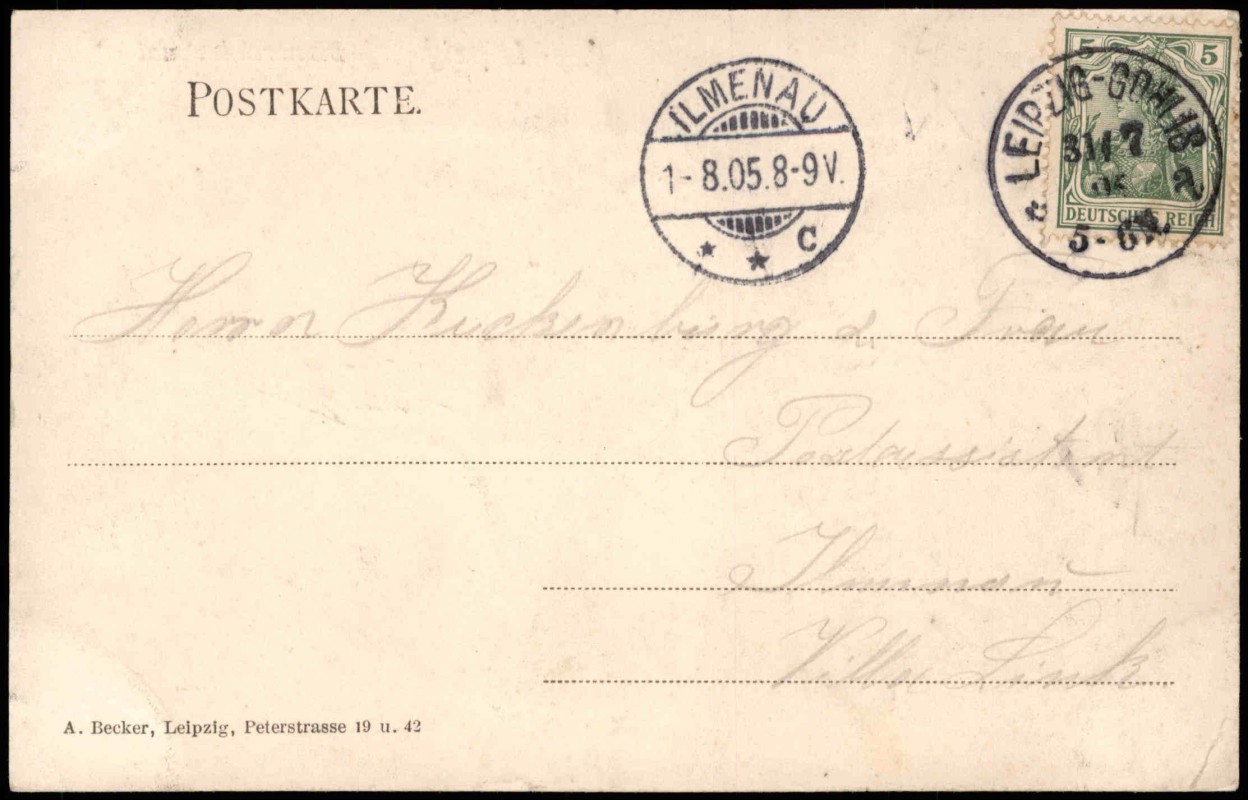 POSTKARTE.
ILMENAU
1-8.05.8-9V.
* * C
5 5
DEUTSCHES REICH
LEIPZIG-GOHLIS
31/7
05 a
5-6N.
Herrn Kuckenburg & Frau
Postassistent
Ilmenau
Villa Link.
A. Becker, Leipzig, Peterstrasse 19 u. 42